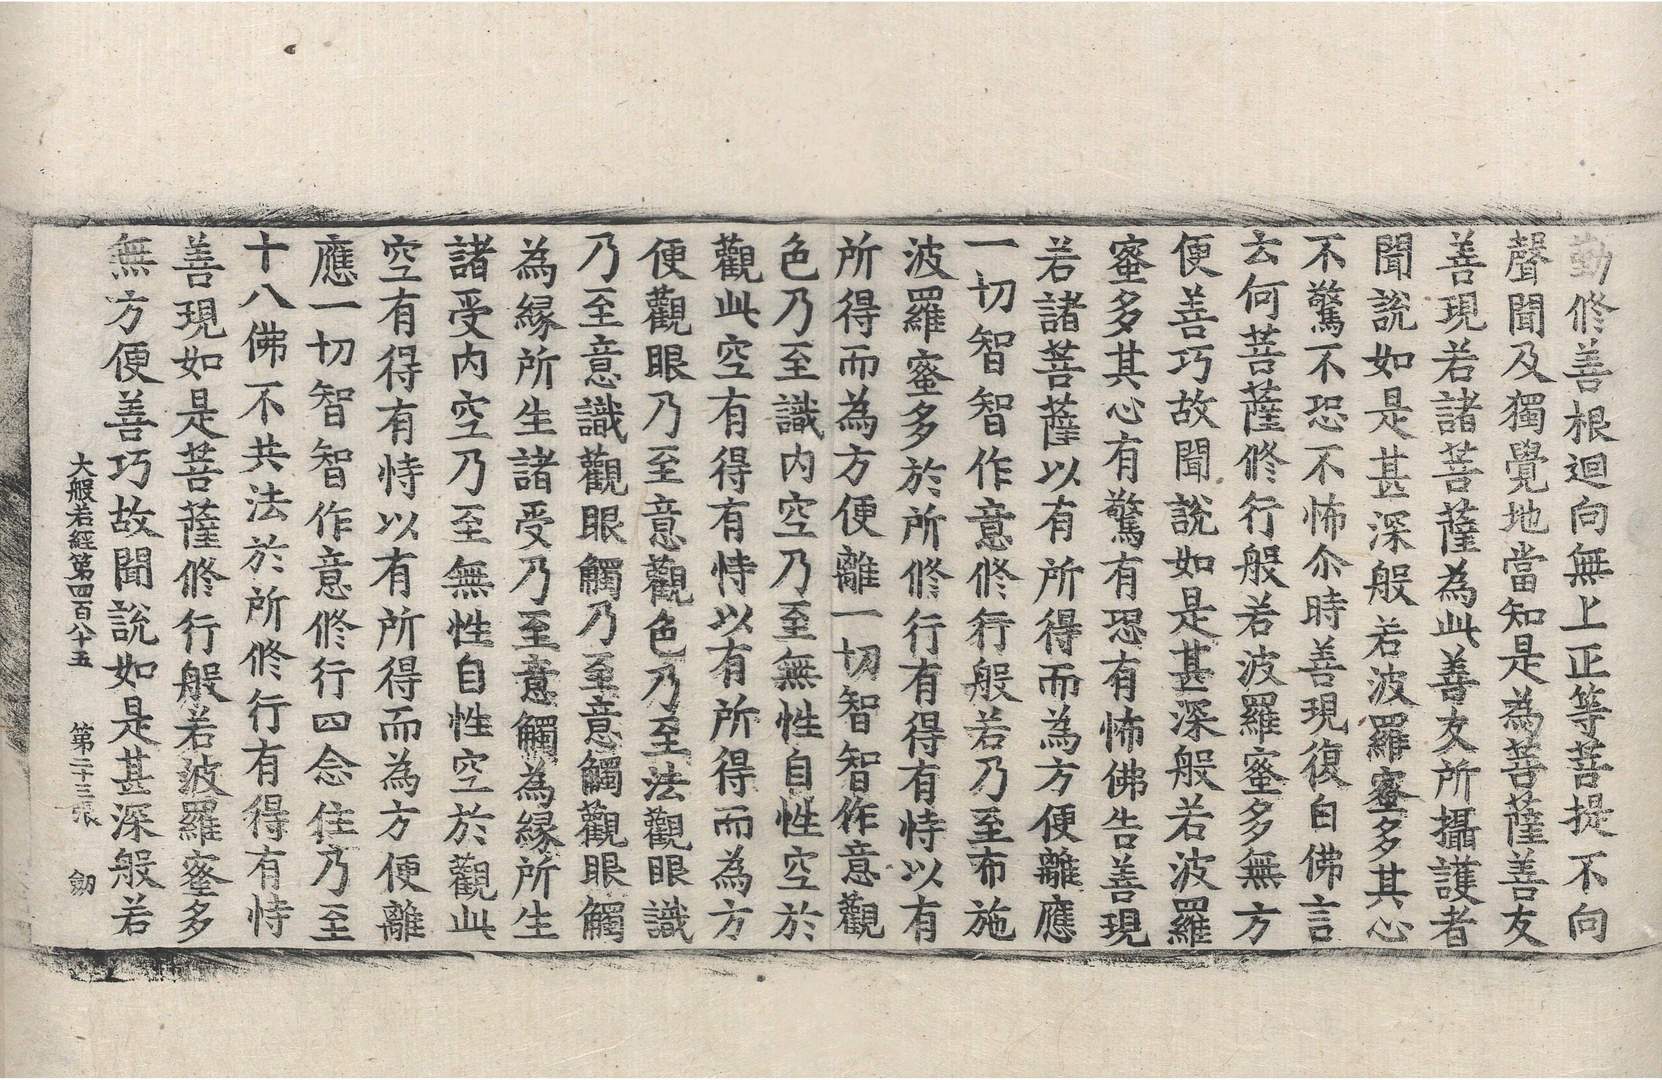 勤修善根迴向無上正等菩提不向
聲聞及獨覺地當知是為菩薩善友
善現若諸菩薩為此善友所攝護者
聞說如是甚深般若波羅蜜多其心
不驚不恐不怖尒時善現復白佛言
云何菩薩修行般若波羅蜜多無方
便善巧故聞說如是甚深般若波羅
蜜多其心有驚有恐有怖佛告善現
若諸菩薩以有所得而為方便離應
一切智智作意修行般若乃至布施
波羅蜜多於所修行有得有恃以有
所得而為方便離一切智智作意觀
色乃至識內空乃至無性自性空於
觀此空有得有恃以有所得而為方
便觀眼乃至意觀色乃至法觀眼識
乃至意識觀眼觸乃至意觸觀眼觸
為緣所生諸受乃至意觸為緣所生
諸受內空乃至無性自性空於觀此
空有得有恃以有所得而為方便離
應一切智智作意修行四念住乃至
十八佛不共法於所修行有得有恃
善現如是菩薩修行般若波羅蜜多
無方便善巧故聞說如是甚深般若
大般若經第四百八十五 第二十三張 劒